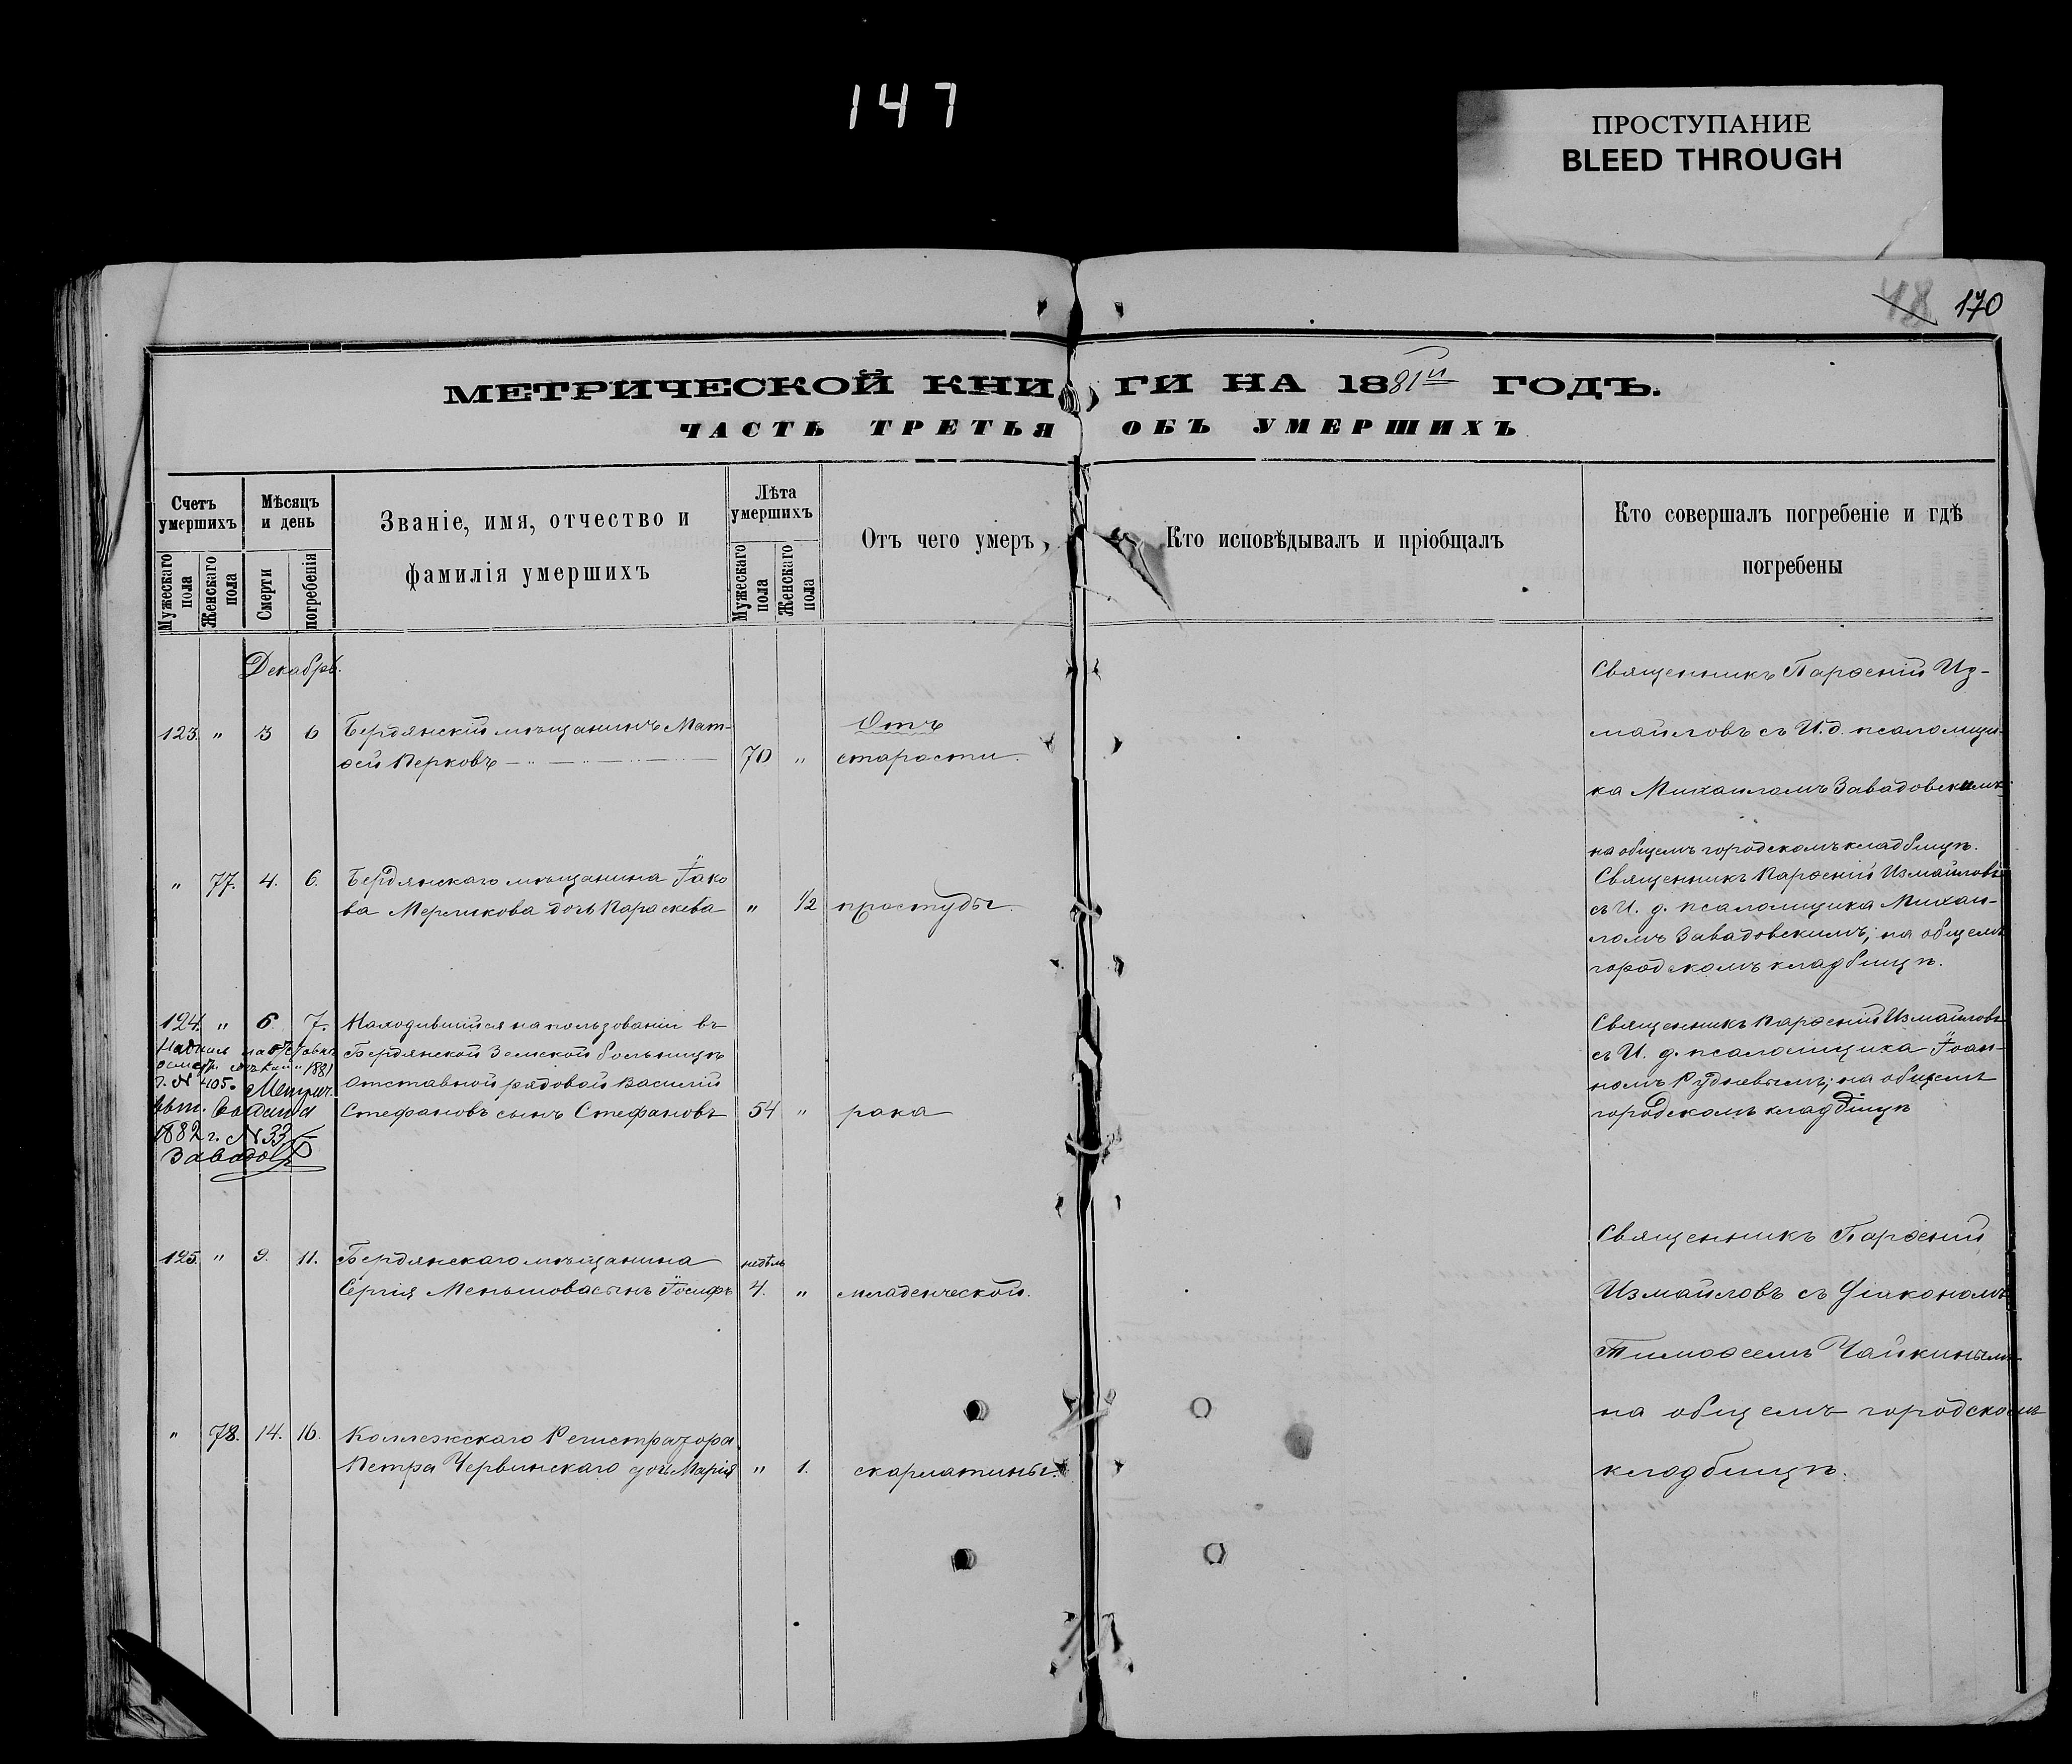 147
ПРОСТУПАНИЕ
BLEED THROUGH
48 170
МЕТРИЧЕСКОЙ КНИГИ НА 1881й ГОДЪ.
ЧАСТЬ ТРЕТЬЯ ОБЪ УМЕРШИХЪ
Счетъ умершихъ
Мужескаго пола
Женскаго пола
Мѣсяцъ и день
Смерти
погребенія
Званіе, имя, отчество и
фамилія умершихъ
Лѣта умершихъ
Мужескаго пола
Женскаго пола
Отъ чего умеръ
Кто исповѣдывалъ и пріобщалъ
Кто совершалъ погребеніе и гдѣ
погребены
Декабрь.
123. " 3 6 Бердянскій мѣщанинъ Мат-
ѳей Перковъ 70 " Отъ
старости.
Священникъ Парѳеній Из-
майловъ съ И. д. псаломщи-
ка Михаиломъ Завадовскимъ;
на общемъ городскомъ кладбищѣ.
" 77. 4. 6. Бердянскаго мѣщанина Іако
ва Мерликова дочь Параскева " 1/2 простуды.
Священникъ Парѳеній Измайловъ
съ И. д. псаломщика Михаи-
ломъ Завадовскимъ; на общемъ
городскомъ кладбищѣ.
124. " 6. 7. Находившійся на пользованіи въ
Бердянской Земской больницѣ
Отставной рядовой Василій
Стефановъ сынъ Стефановъ 54 " рака
1881
г. N 405. Метрич.
выдана
1882 г. N 33
Завадов
Священникъ Парѳеній Измайловъ
съ И. д. псаломщика Іоан-
номъ Рудневымъ; на общемъ
городскомъ кладбищѣ
125. " 9. 11. Бердянскаго мѣщанина
Сергія Меньшова сынъ Іосифъ недѣль
4. " младенческой.
Священникъ Парѳеній
Измайловъ съ Діакономъ
Тимоѳеемъ Чайкинымъ
на общемъ городскомъ
кладбищѣ.
" 78. 14. 16. Коллежскаго Регистратора
Петра Червинскаго дочь Марія " 1. скарлатины.